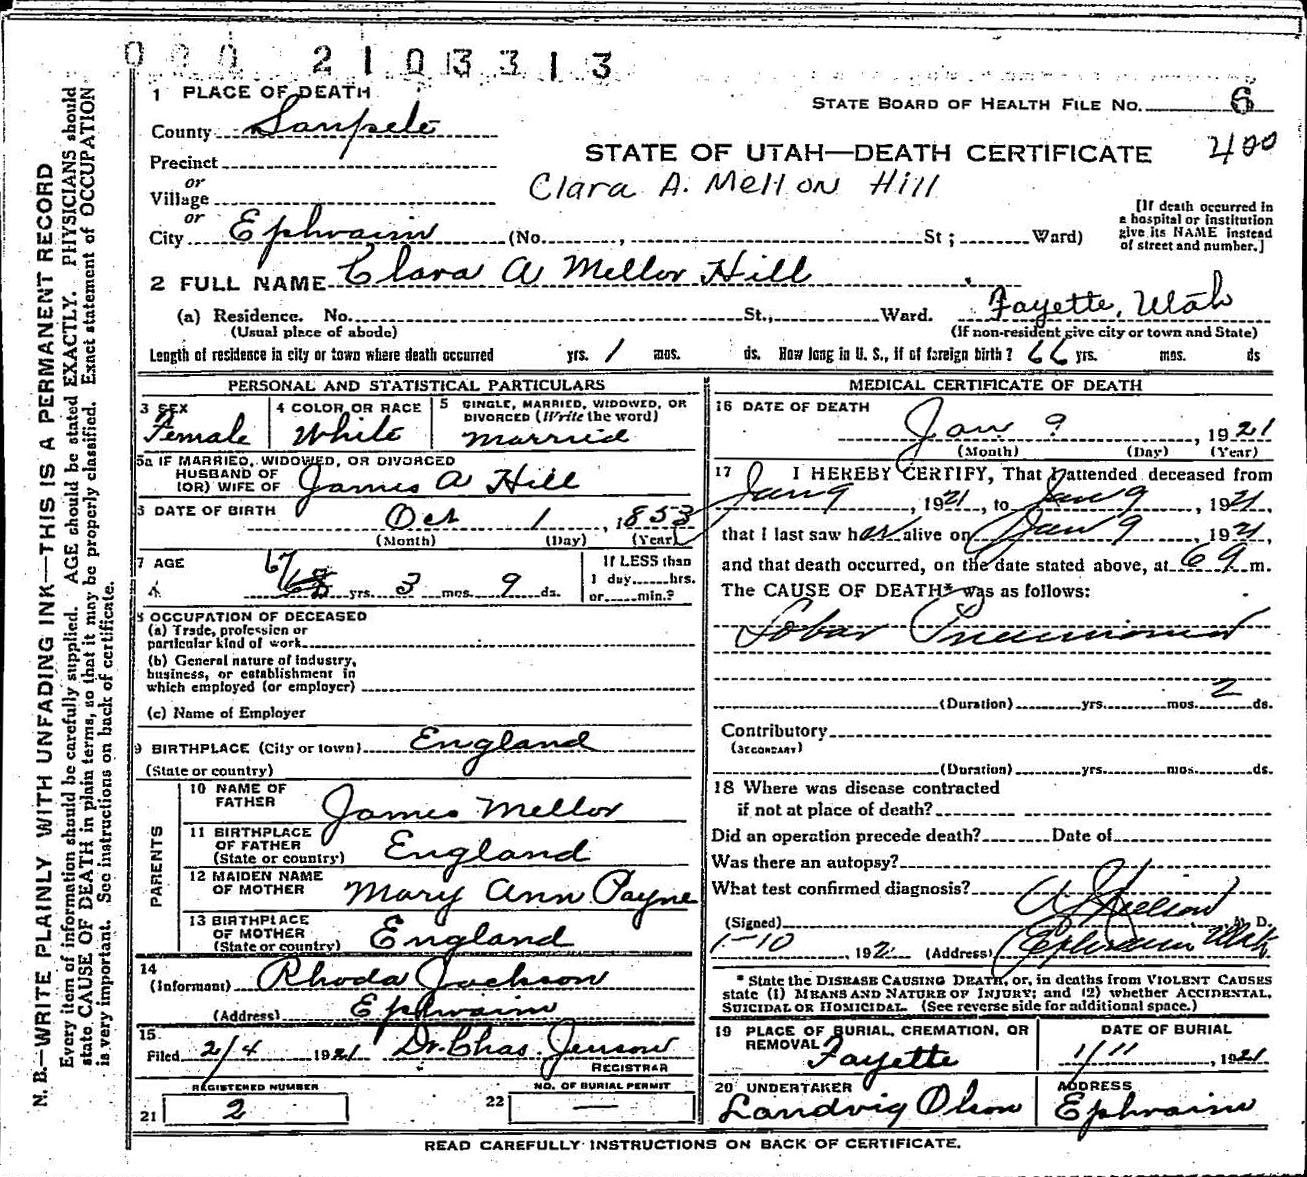 000 2103313
1 PLACE OF DEATH
STATE BOARD OF HEALTH FILE NO. 6
County Sanpete
400
STATE OF UTAH—DEATH CERTIFICATE
Precinct
or
Village
Clara A. Mellon Hill
or
City Ephraim (No. , St ; Ward)
[If death occurred in
a hospital or institution
give its NAME instead
of street and number.]
2 FULL NAME Clara A Mellor Hill
(a) Residence. No. St., Ward. Fayette, Utah
(Usual place of abode) (If non-resident give city or town and State)
Length of residence in city or town where death occurred yrs. 1 mos. ds. How long in U. S., if of foreign birth? 66 yrs. mos. ds
PERSONAL AND STATISTICAL PARTICULARS
3 SEX Female
4 COLOR OR RACE White
5 SINGLE, MARRIED, WIDOWED, OR
DIVORCED (Write the word)
Married
5a IF MARRIED, WIDOWED, OR DIVORCED
HUSBAND OF
(OR) WIFE OF James A Hill
6 DATE OF BIRTH
Oct 1 , 1853
(Month) (Day) (Year)
7 AGE
67 yrs. 3 mos. 9 ds.
If LESS than
1 day hrs.
or min.?
8 OCCUPATION OF DECEASED
(a) Trade, profession or
particular kind of work
(b) General nature of industry,
business, or establishment in
which employed (or employer)
(c) Name of Employer
9 BIRTHPLACE (City or town) England
(State or country)
PARENTS
10 NAME OF
FATHER James Mellor
11 BIRTHPLACE
OF FATHER
(State or country) England
12 MAIDEN NAME
OF MOTHER Mary Ann Payne
13 BIRTHPLACE
OF MOTHER
(State or country) England
14
(Informant) Rhoda Jackson
(Address) Ephraim
15
Filed 2/4 1921 Dr. Chas. Jenson
REGISTRAR
REGISTERED NUMBER
21 2
NO. OF BURIAL PERMIT
22 —
MEDICAL CERTIFICATE OF DEATH
16 DATE OF DEATH
Jan 9 , 1921
(Month) (Day) (Year)
17 I HEREBY CERTIFY, That I attended deceased from
Jan 9 , 1921, to Jan 9 , 1921,
that I last saw her alive on Jan 9 , 1921,
and that death occurred, on the date stated above, at 6 a. m.
The CAUSE OF DEATH* was as follows:
Lobar Pneumonia
(Duration) yrs. mos. 2 ds.
Contributory
(SECONDARY)
(Duration) yrs. mos. ds.
18 Where was disease contracted
if not at place of death?
Did an operation precede death? Date of
Was there an autopsy?
What test confirmed diagnosis?
(Signed) M. D.
1-10 , 192 (Address) Ephraim Utah
* State the DISEASE CAUSING DEATH, or, in deaths from VIOLENT CAUSES
state (1) MEANS AND NATURE OF INJURY; and (2) whether ACCIDENTAL,
SUICIDAL OR HOMICIDAL. (See reverse side for additional space.)
19 PLACE OF BURIAL, CREMATION, OR
REMOVAL Fayette
DATE OF BURIAL
1/11 , 1921
20 UNDERTAKER
Landvig Olson
ADDRESS
Ephraim
READ CAREFULLY INSTRUCTIONS ON BACK OF CERTIFICATE.
N. B.—WRITE PLAINLY WITH UNFADING INK—THIS IS A PERMANENT RECORD
Every item of information should be carefully supplied. AGE should be stated EXACTLY. PHYSICIANS should
state CAUSE OF DEATH in plain terms, so that it may be properly classified. Exact statement of OCCUPATION
is very important. See instructions on back of certificate.